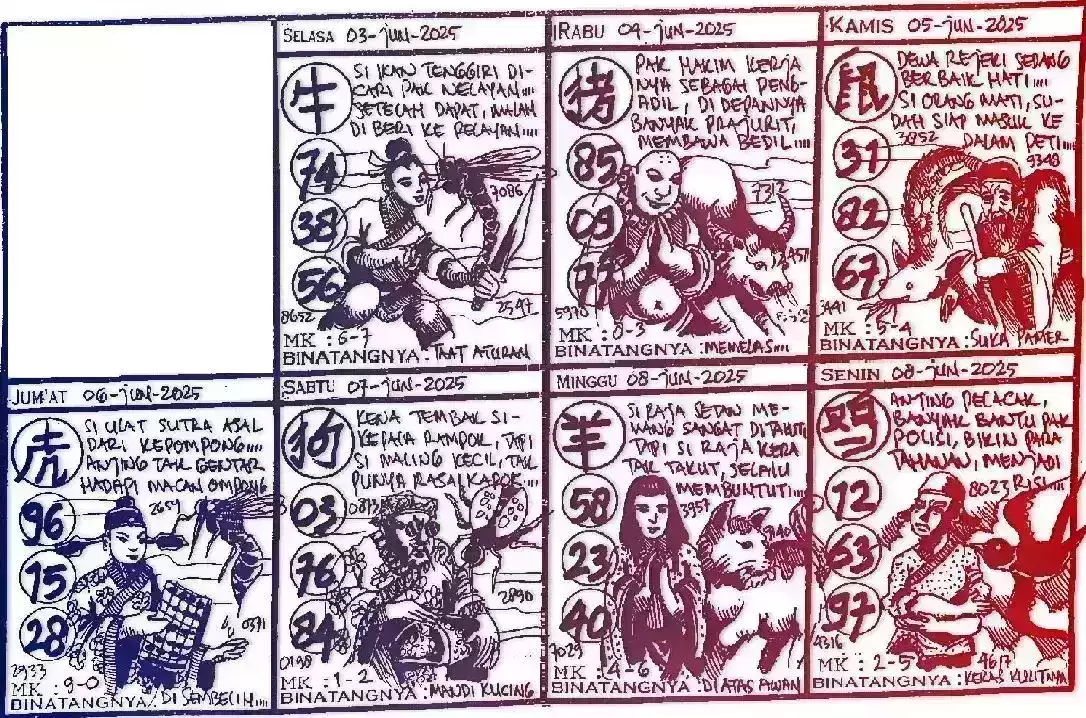 SELASA 03-JUN-2025
牛
SI IKAN TENGGIRI DI-
CARI PAK NELAYAN....
SETELAH DAPAT, MALAH
DI BERI KE PELAYAN....
74
38
56
7086
2597
8652
MK : 6-7
BINATANGNYA : TAAT ATURAN
RABU 04-JUN-2025
猪
PAK HAKIM KERJA
NYA SEBAGAI PENG-
ADIL, DI DEPANNYA
BANYAK PRAJURIT,
MEMBAWA BEDIL....
85
09
77
7312
5970
MK : 0-3
BINATANGNYA : MEMELAS....
KAMIS 05-JUN-2025
鼠
DEWA REJEKI SEDANG
BERBAIK HATI....
SI ORANG MATI, SU-
DAH SIAP MASUK KE
DALAM PETI....
3852
9348
31
82
67
3441
MK : 5-4
BINATANGNYA : SUKA PAMER
JUM'AT 06-JUN-2025
虎
SI ULAT SUTRA ASAL
DARI KEPOMPONG....
ANJING TAK GENTAR
HADAPI MACAN OMPONG
96
15
28
2659
0371
2933
MK : 9-0
BINATANGNYA : DI SEMBELIH....
SABTU 07-JUN-2025
狗
KENA TEMBAK SI-
KEPALA RAMPOK, TAPI
SI MALING KECIL, TAK
PUNYA RASA KAPOK....
03
76
84
0873
2890
0198
MK : 1-2
BINATANGNYA : MANDI KUCING
MINGGU 08-JUN-2025
羊
SI RAJA SETAN ME-
MANG SANGAT DITAKUTI
TAPI SI RAJA KERA
TAK TAKUT, SELALU
MEMBUNTUTI....
58
23
40
3957
7029
MK : 4-6
BINATANGNYA : DI ATAS AWAN
SENIN 09-JUN-2025
鸡
ANJING PELACAK,
BANYAK BANTU PAK
POLISI, BIKIN PARA
TAHANAN, MENJADI
RISI....
8023
12
63
97
4316
4617
MK : 2-5
BINATANGNYA : KERAS KULITNYA